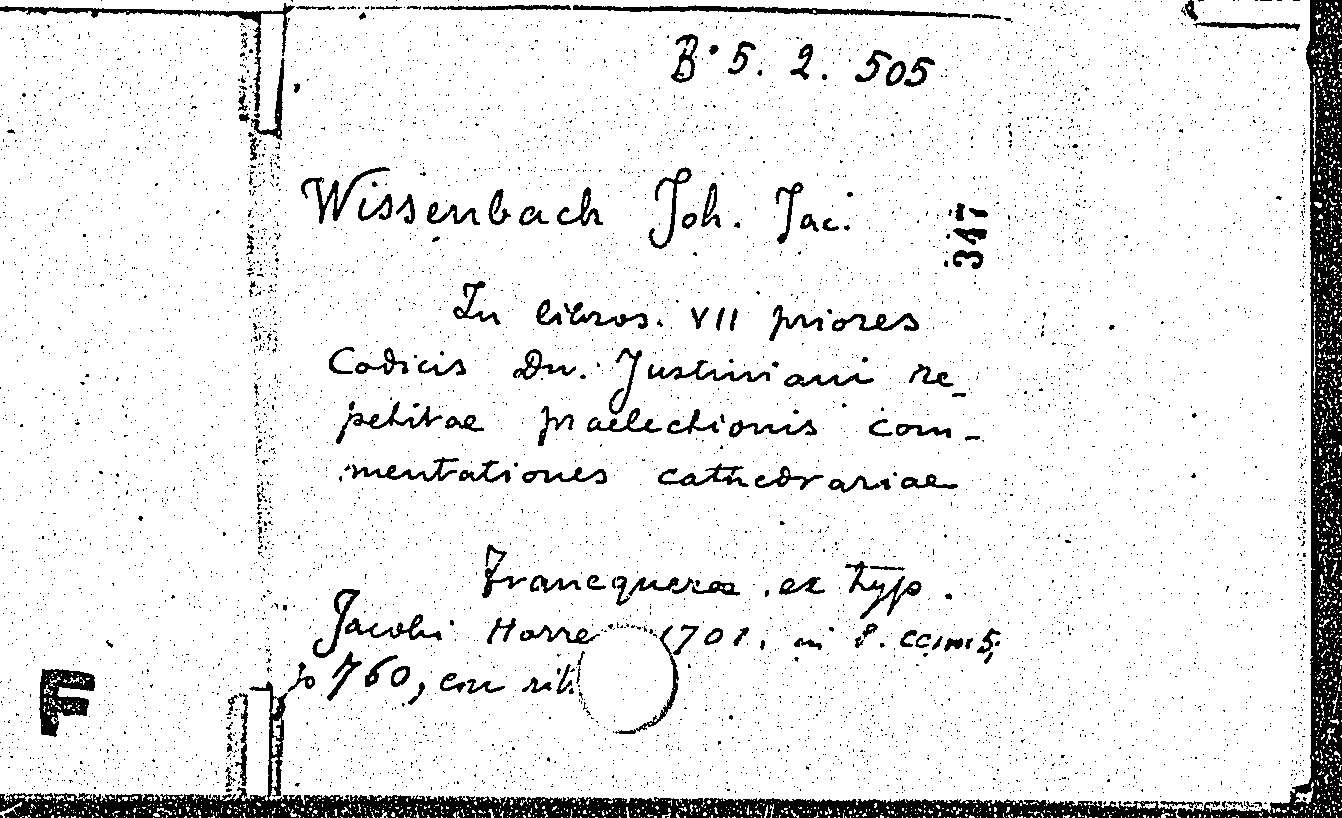 B. 5. 2. 505
Wissenbach Joh. Jac.
347
In libros. VII priores
Codicis Dn. Justiniani re_
petitae praelectionis com-
mentationes cathedrariae
Francquerae . ex typ .
Jacobi Horre 1701. in 8.
760, con
F